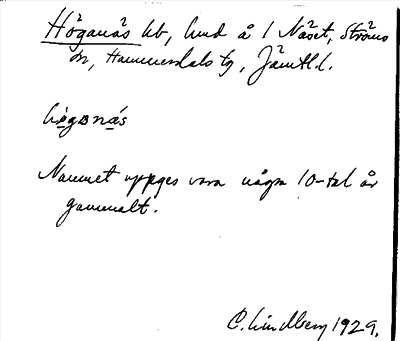 Höganäs hb, hmd å 1 Näset, Ströms
sn, Hammerdals tg, Jämtl. l.
höganäs
Namnet uppges vara några 10-tal år
gammalt.
C. Lindberg 1929.